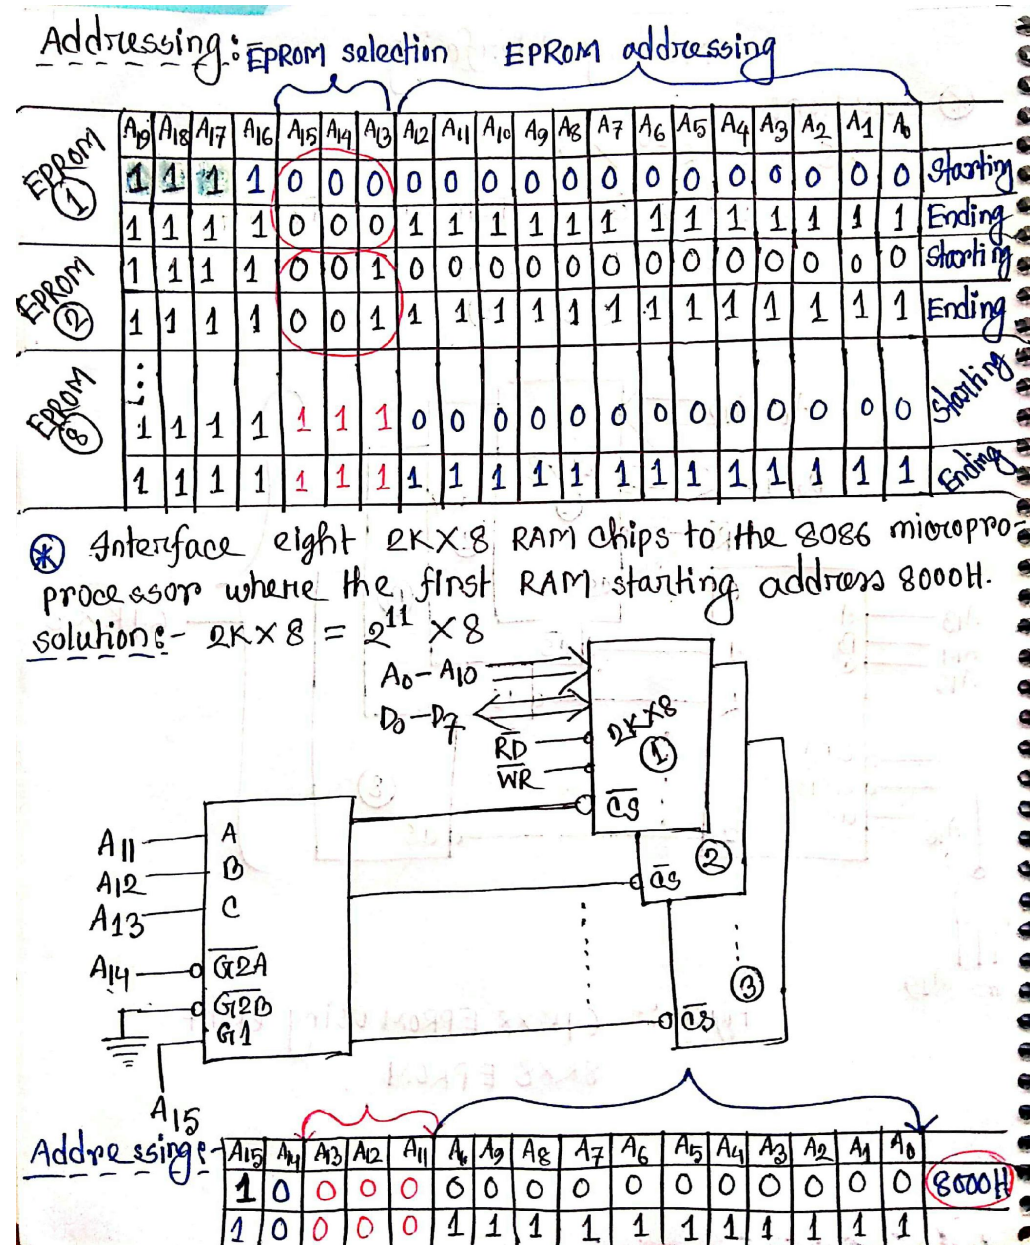 Addressing:
EPROM selection EPROM addressing
A19 A18 A17 A16 A15 A14 A13 A12 A11 A10 A9 A8 A7 A6 A5 A4 A3 A2 A1 A0
EPROM 1 1 1 1 1 0 0 0 0 0 0 0 0 0 0 0 0 0 0 0 0 Starting
1 1 1 1 0 0 0 1 1 1 1 1 1 1 1 1 1 1 1 1 Ending
EPROM 2 1 1 1 1 0 0 1 0 0 0 0 0 0 0 0 0 0 0 0 0 Starting
1 1 1 1 0 0 1 1 1 1 1 1 1 1 1 1 1 1 1 1 Ending
EPROM 8 1 1 1 1 1 1 1 0 0 0 0 0 0 0 0 0 0 0 0 0 Starting
1 1 1 1 1 1 1 1 1 1 1 1 1 1 1 1 1 1 1 1 Ending
* Interface eight 2KX8 RAM chips to the 8086 micropro-
processor where the first RAM starting address 8000H.
solution:- 2KX8 = 2^11 X8
A0-A10
D0-D7
RD
WR
2KX8
1
CS
2
CS
3
CS
A11 A
A12 B
A13 C
A14 G2A
G2B
G1
A15
Addressing:-
A15 A14 A13 A12 A11 A9 A8 A7 A6 A5 A4 A3 A2 A1 A0
1 0 0 0 0 0 0 0 0 0 0 0 0 0 0 0 8000H
1 0 0 0 0 1 1 1 1 1 1 1 1 1 1 1